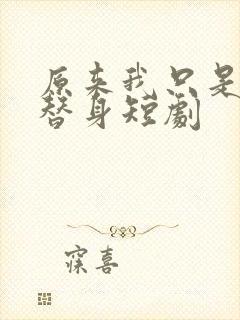 原来我只是
替身短剧
寐喜